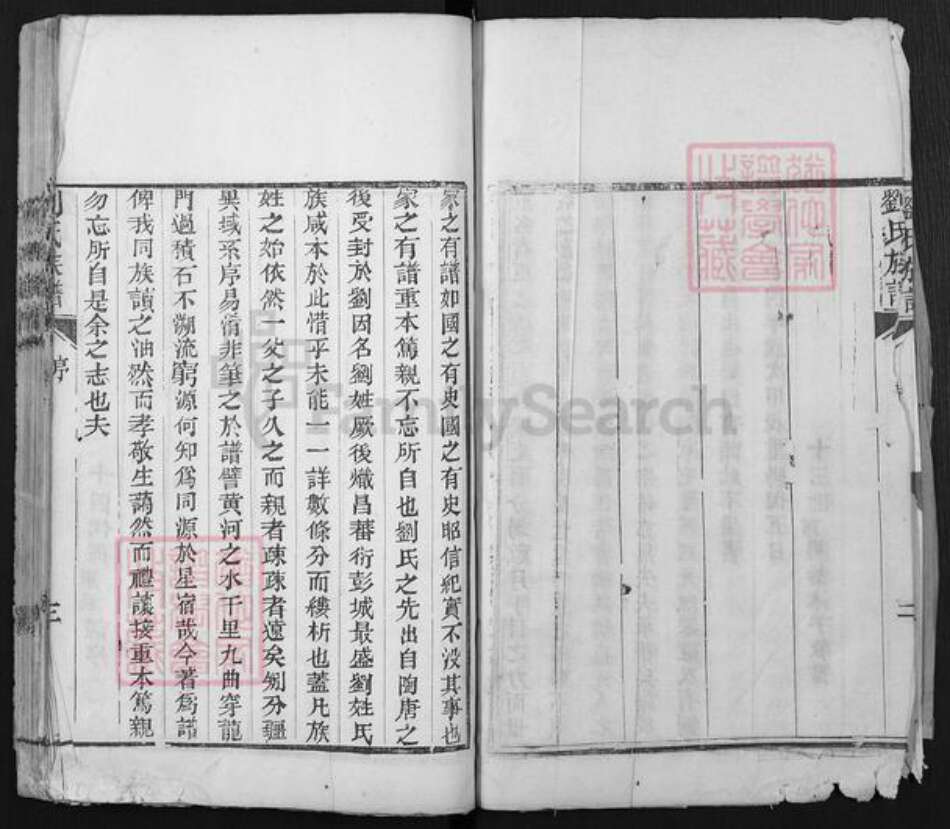 劉氏族譜
二
家之有譜如國之有史國之有史昭信紀實不没其事也
家之有譜重本篤親不忘所自也劉氏之先出自陶唐之
後受封於劉因名劉姓厥後熾昌蕃衍彭城最盛劉姓氏
族咸本於此惜乎未能一一詳數條分而縷析也蓋凡族
姓之始依然一父之子久之而親者疎疎者遠矣矧分疆
異域系序易淆非筆之於譜譬黄河之水千里九曲穿龍
門過積石不溯流窮源何知爲同源於星宿哉今著爲譜
俾我同族讀之油然而孝敬生藹然而禮讓接重本篤親
勿忘所自是余之志也夫
劉氏族譜
序
三
FamilySearch